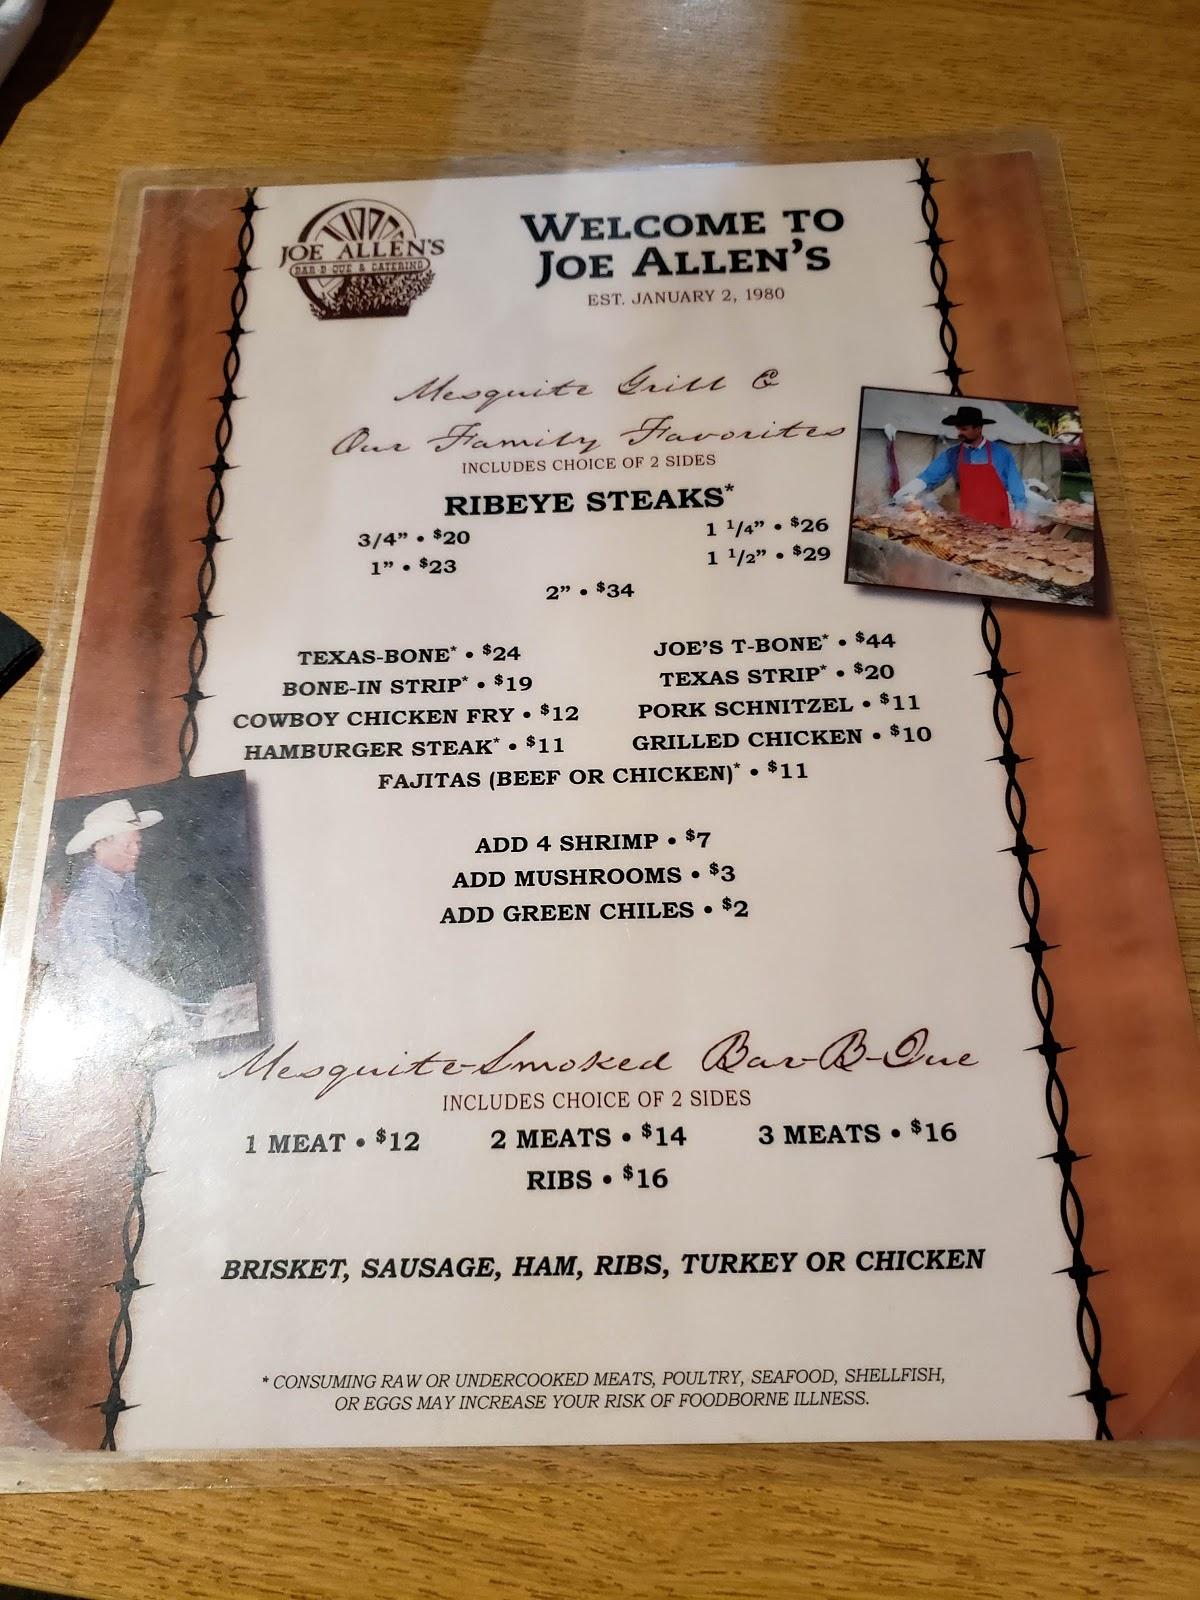 JOE ALLEN'S
BAR-B-QUE & CATERING
WELCOME TO
JOE ALLEN'S
EST. JANUARY 2, 1980
Mesquite Grill &
Our Family Favorites
INCLUDES CHOICE OF 2 SIDES
RIBEYE STEAKS*
3/4" • $20 1 1/4" • $26
1" • $23 1 1/2" • $29
2" • $34
TEXAS-BONE* • $24 JOE'S T-BONE* • $44
BONE-IN STRIP* • $19 TEXAS STRIP* • $20
COWBOY CHICKEN FRY • $12 PORK SCHNITZEL • $11
HAMBURGER STEAK* • $11 GRILLED CHICKEN • $10
FAJITAS (BEEF OR CHICKEN)* • $11
ADD 4 SHRIMP • $7
ADD MUSHROOMS • $3
ADD GREEN CHILES • $2
Mesquite-Smoked Bar-B-Que
INCLUDES CHOICE OF 2 SIDES
1 MEAT • $12 2 MEATS • $14 3 MEATS • $16
RIBS • $16
BRISKET, SAUSAGE, HAM, RIBS, TURKEY OR CHICKEN
* CONSUMING RAW OR UNDERCOOKED MEATS, POULTRY, SEAFOOD, SHELLFISH,
OR EGGS MAY INCREASE YOUR RISK OF FOODBORNE ILLNESS.